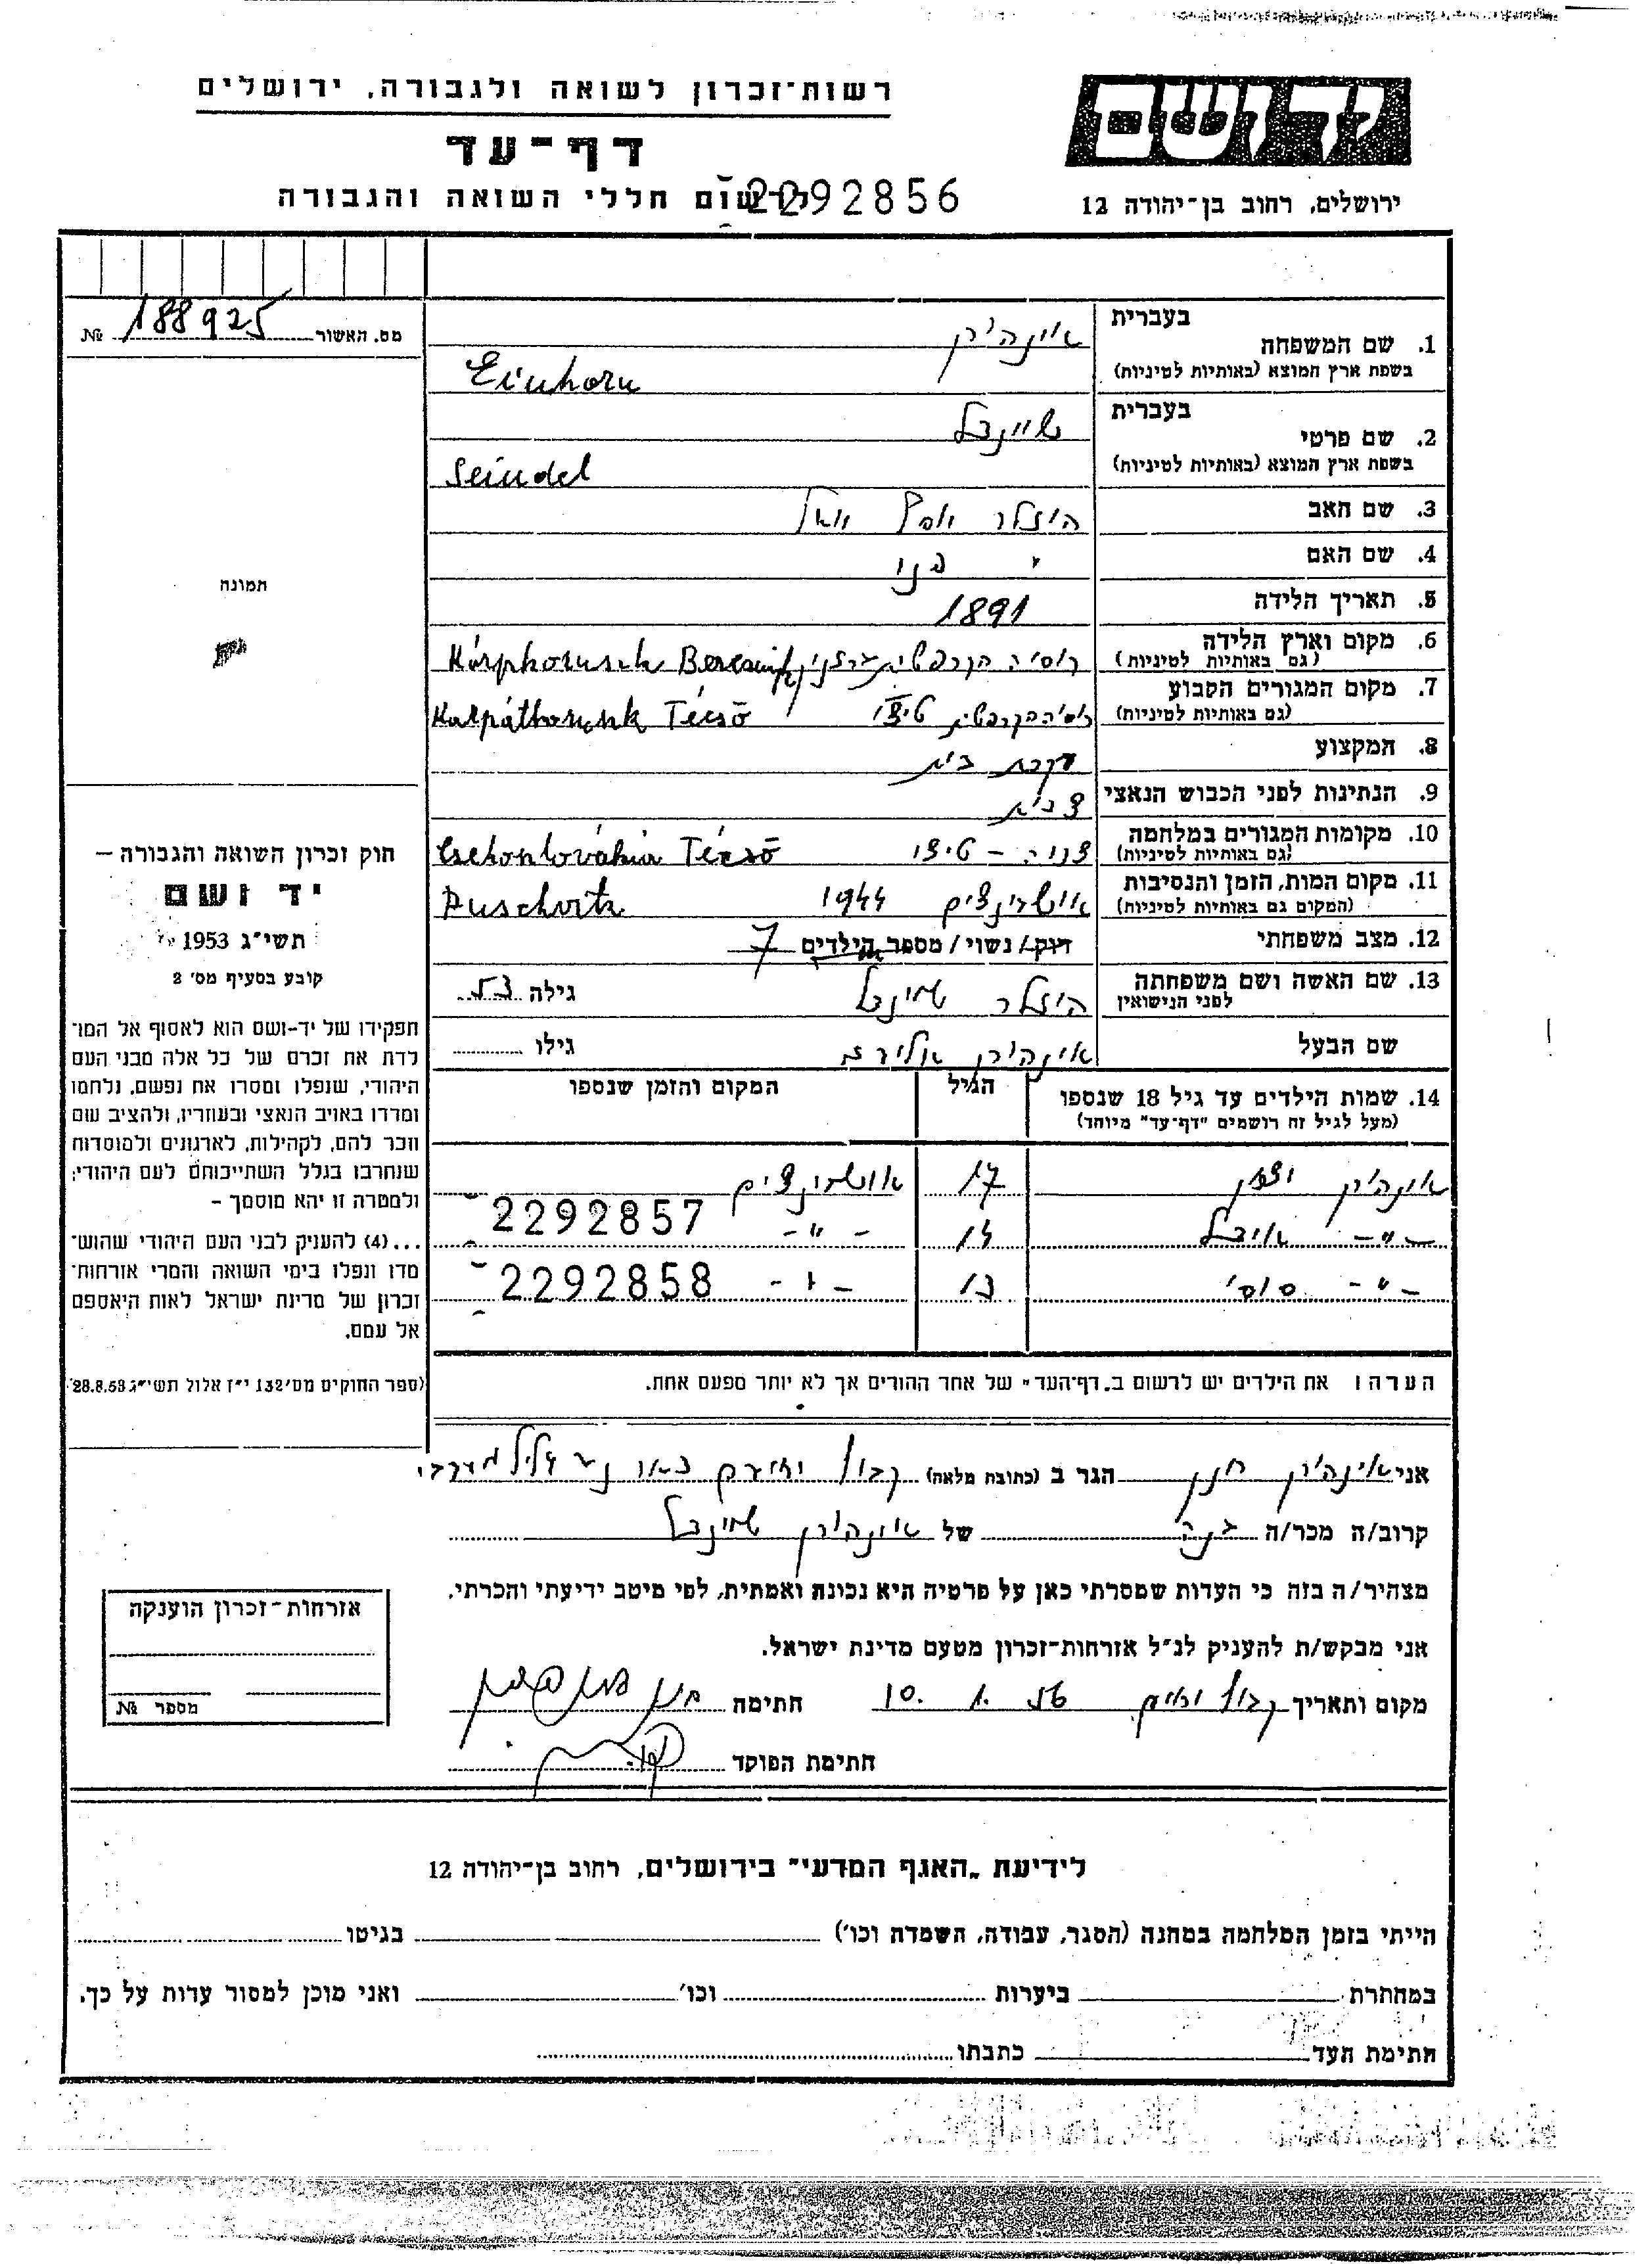 רשות־זכרון לשואה ולגבורה, ירושלים
דף־עד
לרשום חללי השואה והגבורה
2292856
יד ושם
ירושלים, רחוב בן־יהודה 12
מס. האשור 188925 №
1. שם המשפחה
בעברית אינהורן
בשפת ארץ המוצא (באותיות לטיניות) Einhorn
2. שם פרטי
בעברית שיינדל
בשפת ארץ המוצא (באותיות לטיניות) Seindel
3. שם האב
4. שם האם
5. תאריך הלידה 1891
6. מקום וארץ הלידה
(גם באותיות לטיניות)
7. מקום המגורים הקבוע טיצו Técső
(גם באותיות לטיניות)
8. המקצוע עקרת בית
9. הנתינות לפני הכבוש הנאצי
10. מקומות המגורים במלחמה טיצו Técső
(גם באותיות לטיניות)
11. מקום המות, הזמן והנסיבות 1944
(המקום גם באותיות לטיניות)
12. מצב משפחתי רווק/ נשוי/ מספר הילדים 7
13. שם האשה ושם משפחתה שיינדל גילה 53
לפני הנישואין
שם הבעל אינהורן גילו
14. שמות הילדים עד גיל 18 שנספו הגיל המקום והזמן שנספו
(מעל לגיל זה רושמים "דף־עד" מיוחד)
אינהורן 17
2292857
-"- 14 -"-
-"- 13 -"- 2292858
הערה ! את הילדים יש לרשום ב„דף־העד" של אחד ההורים אך לא יותר מפעם אחת.
תמונה
חוק זכרון השואה והגבורה –
יד ושם
תשי"ג 1953
קובע בסעיף מס' 2
תפקידו של יד-ושם הוא לאסוף אל המו־
לדת את זכרם של כל אלה מבני העם
היהודי, שנפלו ומסרו את נפשם, נלחמו
ומרדו באויב הנאצי ובעוזריו, ולהציב שם
וזכר להם, לקהילות, לארגונים ולמוסדות
שנחרבו בגלל השתייכותם לעם היהודי;
ולמטרה זו יהא מוסמך –
...(4) להעניק לבני העם היהודי שהוש־
מדו ונפלו בימי השואה והמרי אזרחות־
זכרון של מדינת ישראל לאות היאספם
אל עמם.
(ספר החוקים מס' 132 י"ז אלול תשי"ג 28.8.53)
אני אינהורן חנן הגר ב (כתובת מלאה)
קרוב/ה מכר/ה בנה של אינהורן שיינדל
מצהיר/ה בזה כי העדות שמסרתי כאן על פרטיה היא נכונה ואמתית, לפי מיטב ידיעתי והכרתי.
אני מבקש/ת להעניק לנ"ל אזרחות־זכרון מטעם מדינת ישראל.
מקום ותאריך 10. 1. 56 חתימה
חתימת הפוקד
אזרחות־זכרון הוענקה
מספר №
לידיעת „האגף המדעי" בירושלים, רחוב בן־יהודה 12
הייתי בזמן המלחמה במחנה (הסגר, עבודה, השמדה וכו') בגיטו
במחתרת ביערות וכו' ואני מוכן למסור עדות על כך.
חתימת העד כתבתו